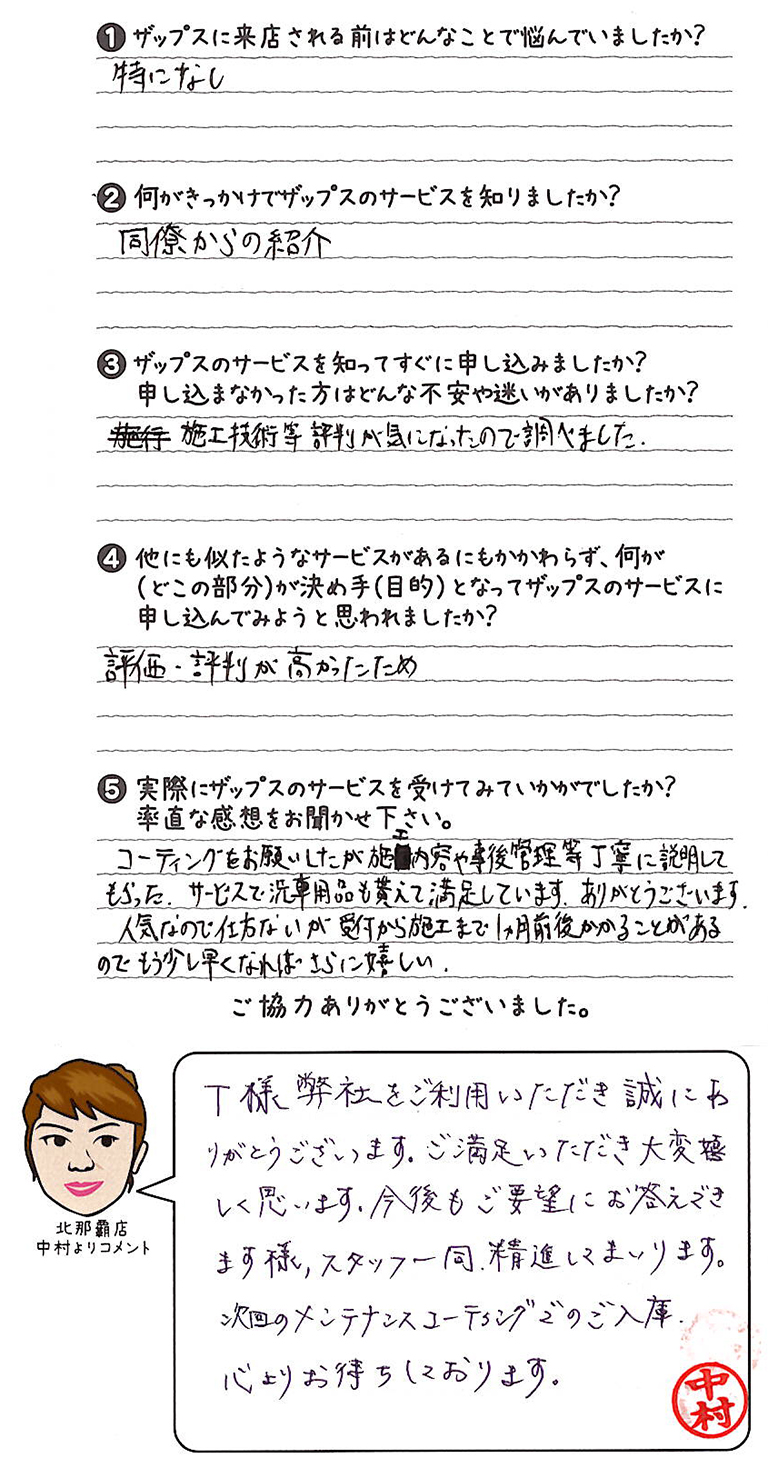 ❶ ザップスに来店される前はどんなことで悩んでいましたか?
特になし
❷ 何がきっかけでザップスのサービスを知りましたか?
同僚からの紹介
❸ ザップスのサービスを知ってすぐに申し込みましたか?
申し込まなかった方はどんな不安や迷いがありましたか?
施行 施工技術等 評判が気になったので調べました.
❹ 他にも似たようなサービスがあるにもかかわらず、何が
(どこの部分)が決め手(目的)となってザップスのサービスに
申し込んでみようと思われましたか?
評価・評判が高かったため
❺ 実際にザップスのサービスを受けてみていかがでしたか?
率直な感想をお聞かせ下さい。
コーティングをお願いしたが施工内容や事後管理等丁寧に説明して
もらった. サービスで洗車用品も貰えて満足しています. ありがとうございます.
人気なので仕方ないが 受付から施工まで1ヵ月前後かかることがある
のでもう少し早くなればさらに嬉しい.
ご協力ありがとうございました。
T様 弊社をご利用いただき誠にあ
りがとうございます。ご満足いただき大変嬉
しく思います。今後もご要望にお答えでき
ます様, スタッフ一同. 精進してまいります。
次回のメンテナンスコーティングでのご入庫.
心よりお待ちしております。
北那覇店
中村よりコメント
中村